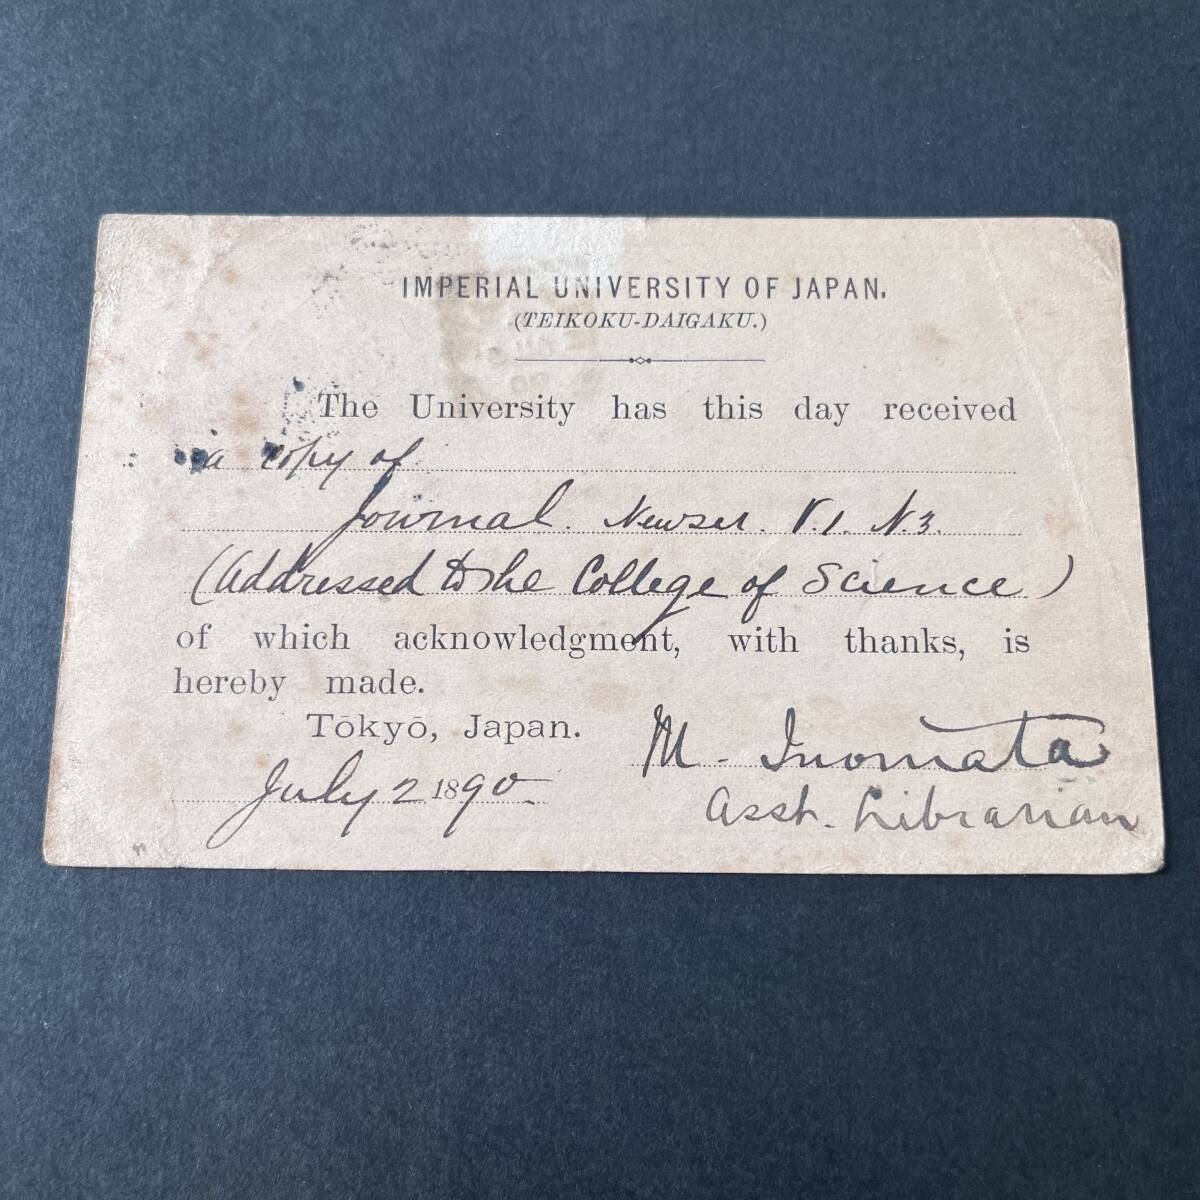 IMPERIAL UNIVERSITY OF JAPAN.
(TEIKOKU-DAIGAKU.)
The University has this day received
a copy of
Journal. Newser. V.1. N.3.
(Addressed to the College of Science)
of which acknowledgment, with thanks, is
hereby made.
Tōkyō, Japan.
M. Inomata
July 2 1890
Asst. Librarian